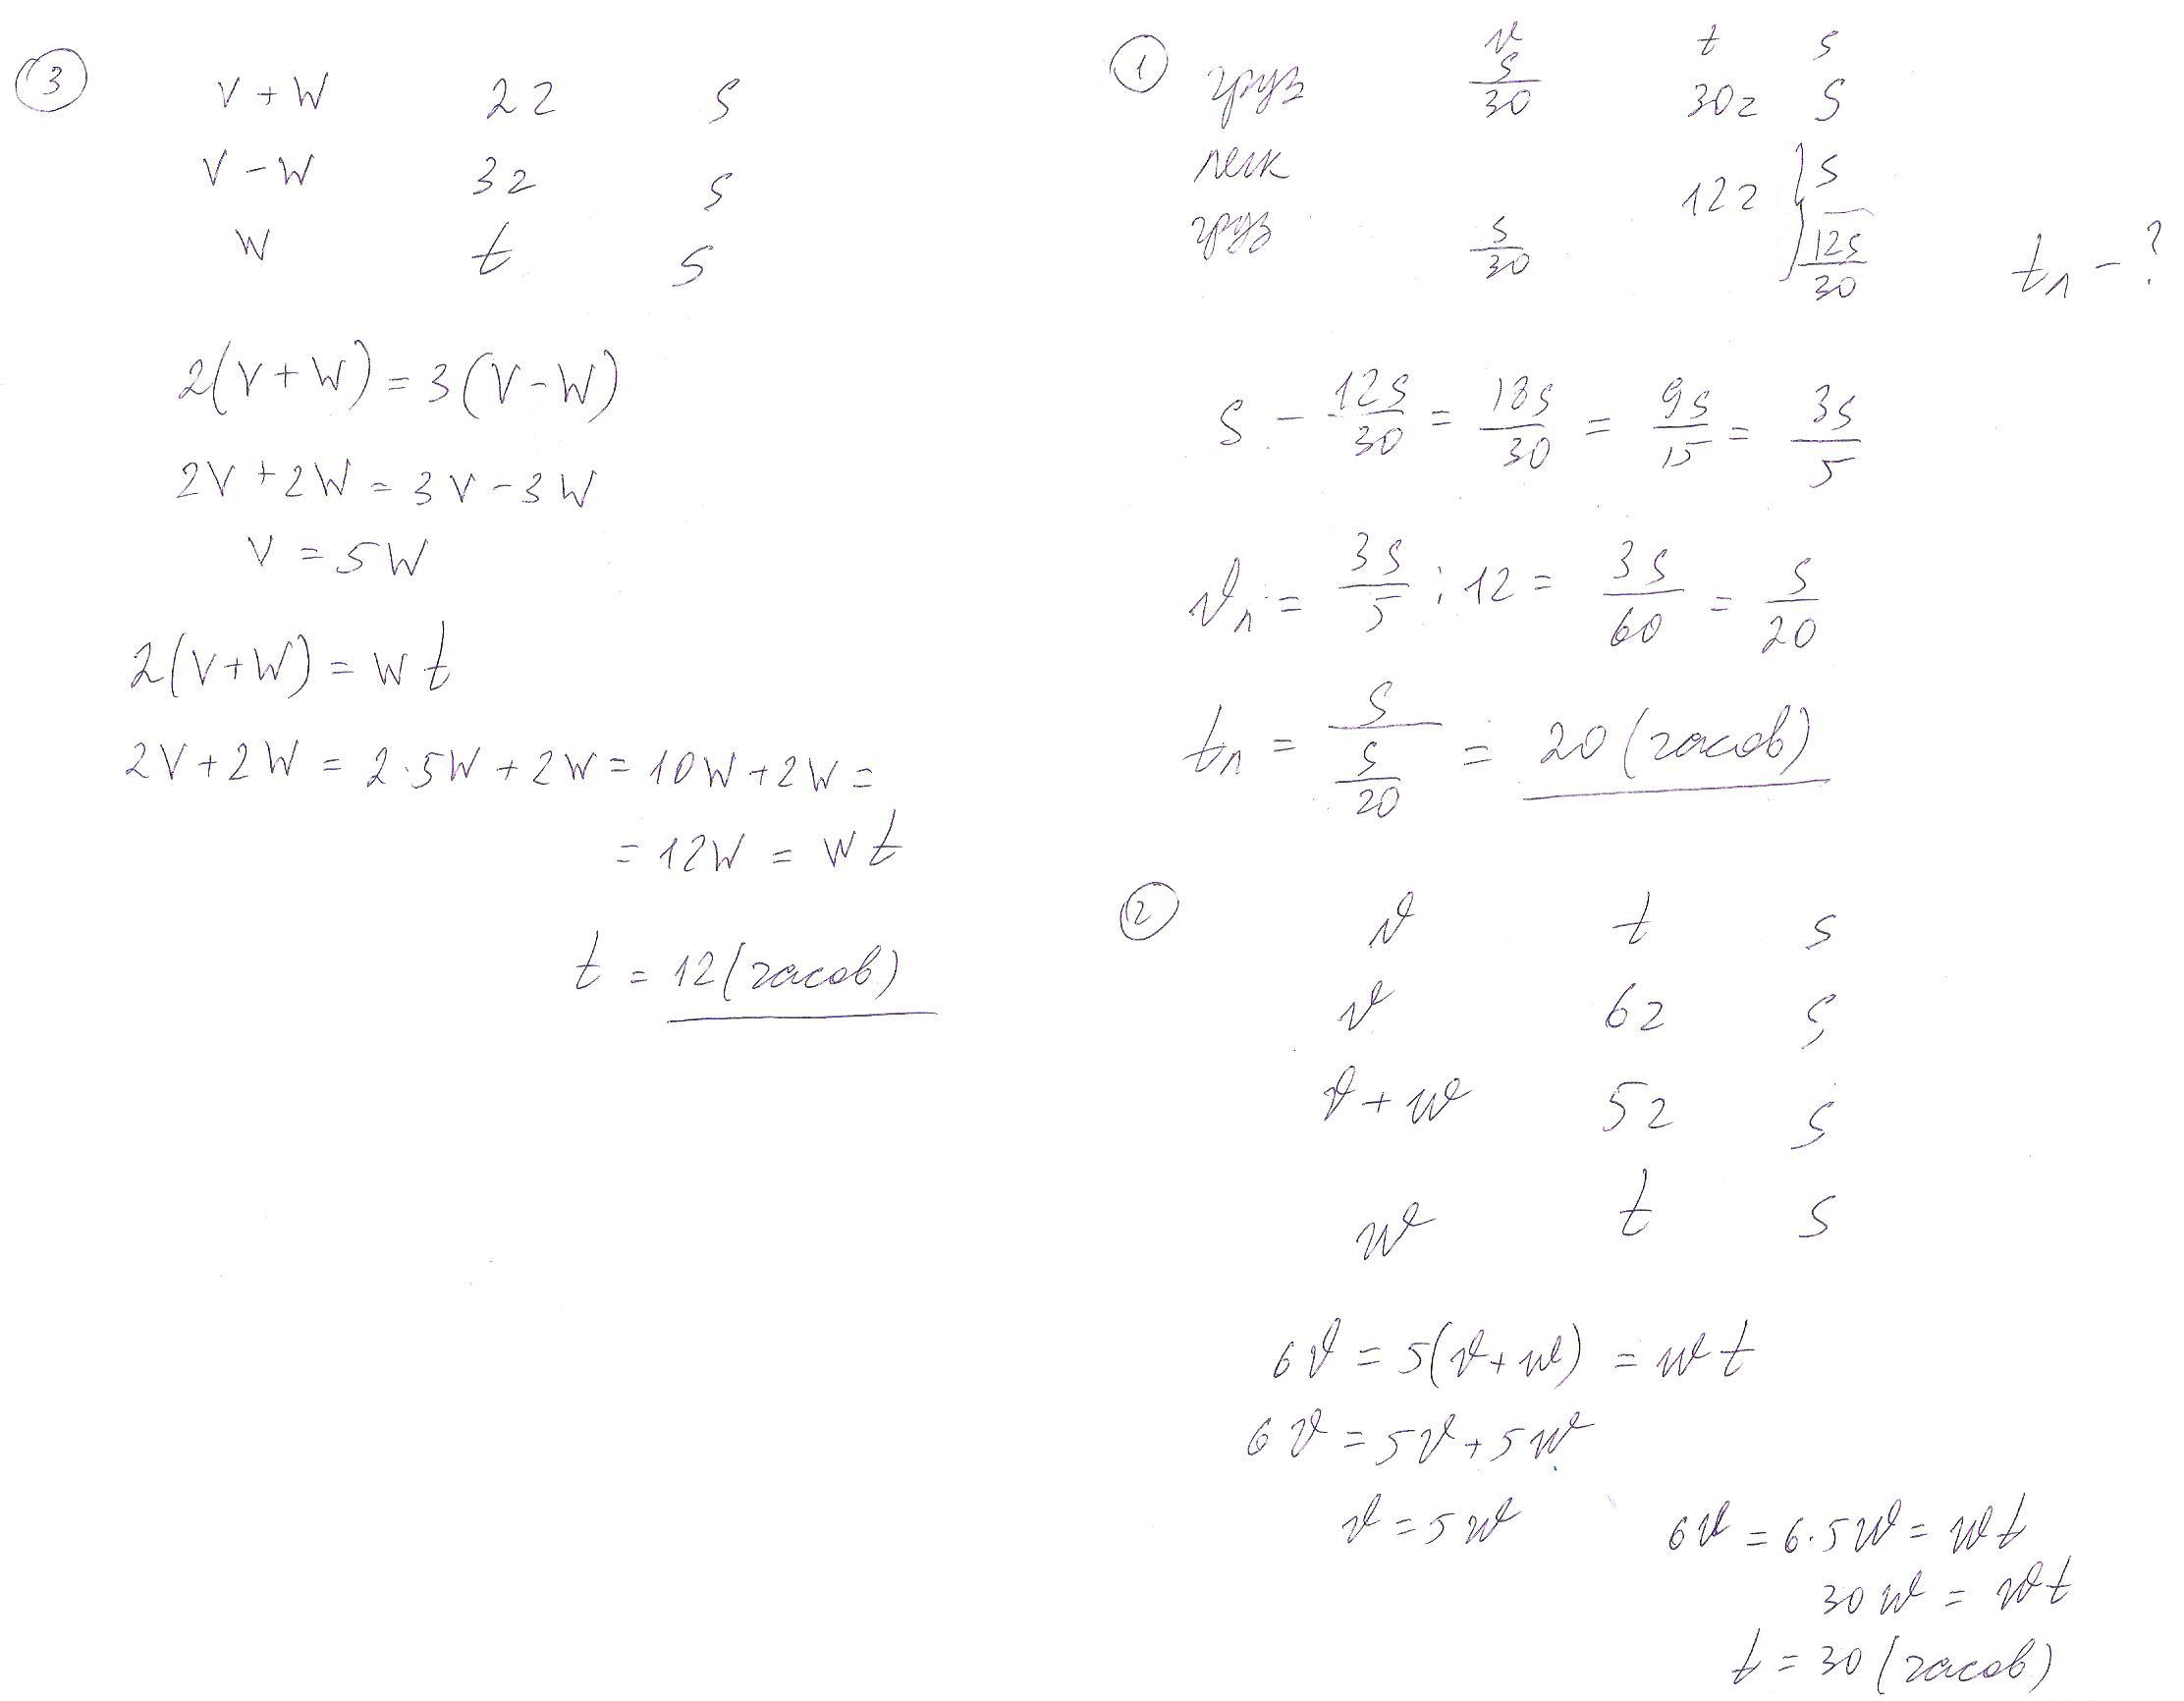 ③
V + W 2ч S
V - W 3ч S
W t S
2(V + W) = 3(V - W)
2V + 2W = 3V - 3W
V = 5W
2(V + W) = W t
2V + 2W = 2·5W + 2W = 10W + 2W =
= 12W = W t
t = 12 (часов)
① v t s
груз S/30 30ч S
легк 12ч S
груз S/30 12S/30 tл - ?
S - 12S/30 = 18S/30 = 9S/15 = 3S/5
vл = 3S/5 : 12 = 3S/60 = S/20
tл = S/(S/20) = 20 (часов)
② v t s
v 6ч S
v + w 5ч S
w t S
6v = 5(v + w) = w t
6v = 5v + 5w
v = 5w 6v = 6·5w = w t
30w = w t
t = 30 (часов)